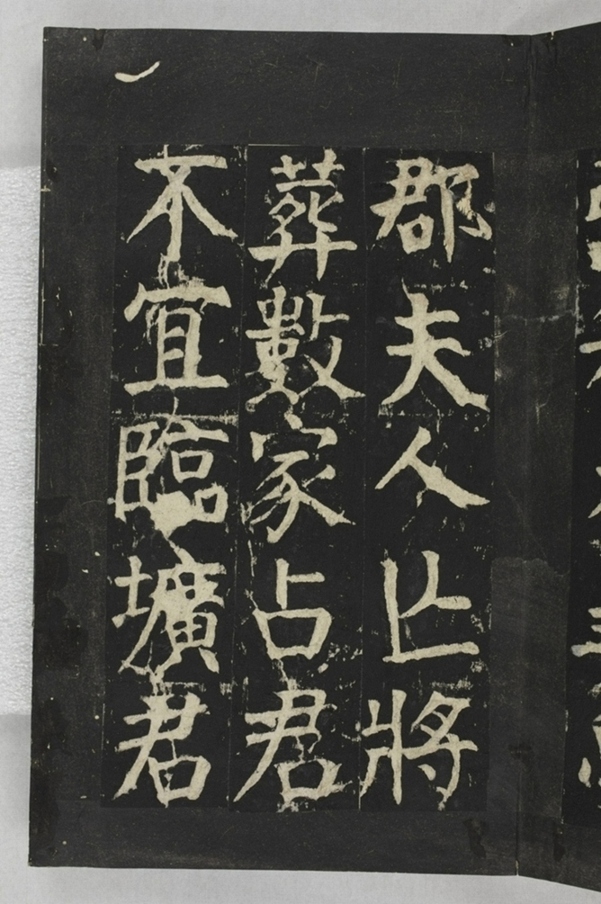 郡夫人亡將
葬數家占君
不宜臨壙君